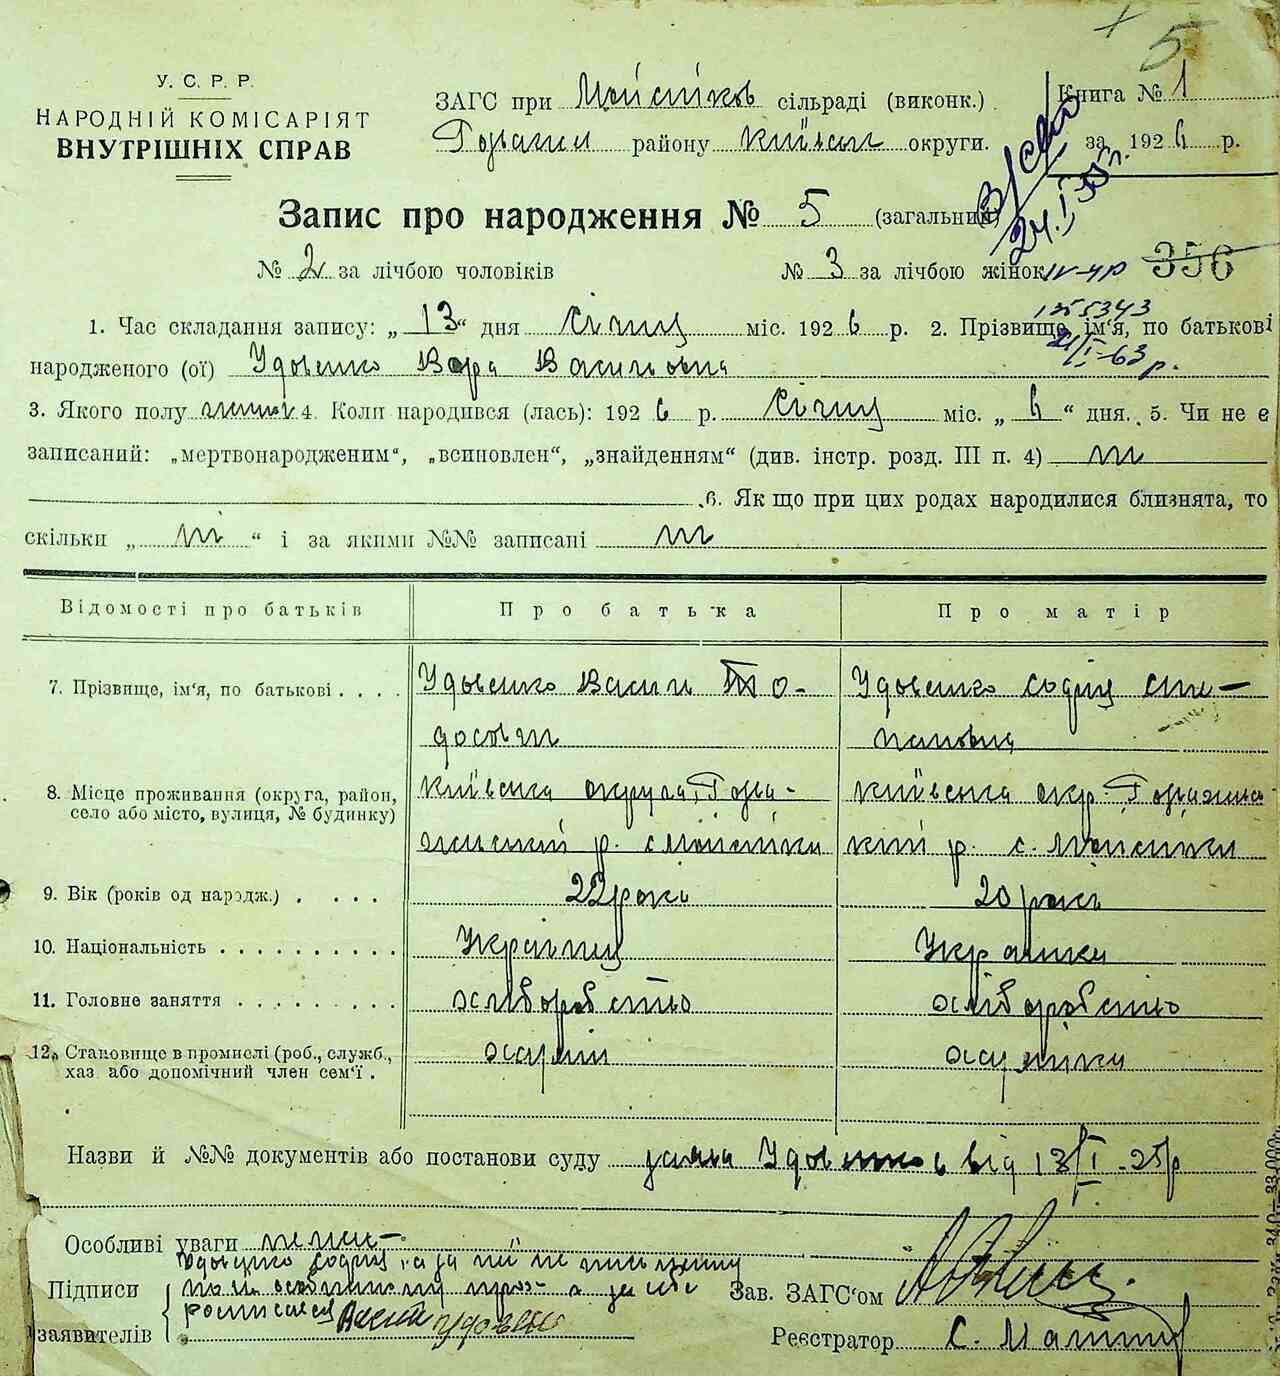 5
У. С. Р. Р.
НАРОДНІЙ КОМІСАРІЯТ
ВНУТРІШНІХ СПРАВ
ЗАГС при Мойсіїков сільраді (виконк.)
району Київськ округи.
Книга № 1
за 1926 р.
24.I.35 г.
Запис про народження № 5 (загальний)
№ 2 за лічбою чоловіків № 3 за лічбою жінок
IV-ЧР
356
1255343
21/I-63 р.
1. Час складання запису: „13“ дня січня міс. 1926 р. 2. Прізвище, ім'я, по батькові
народженого (ої) Удовенко Вера Васильовна
3. Якого полу жіночої 4. Коли народився (лась): 1926 р. січня міс. „6“ дня. 5. Чи не є
записаний: „мертвонародженим“, „всиновлен“, „знайденням“ (див. інстр. розд. III п. 4) ні
6. Як що при цих родах народилися близнята, то
скільки „ні“ і за якими №№ записані ні
Відомості про батьків
Про батька
Про матір
7. Прізвище, ім'я, по батькові . . . .
Удовенко Василь Тодосович
Удовенко Содфія Степановна
8. Місце проживання (округа, район,
село або місто, вулиця, № будинку)
Київська округа,
р. с Мойсіїки
Київська окр.
р. с. Мойсіїки
9. Вік (років од народж.) . . . .
22 роки
20 років
10. Національність . . . . . . . . . .
Українец
Українка
11. Головне заняття . . . . . . . . .
хліборобство
хліборобство
12. Становище в промислі (роб., служб.,
хаз. або допомічний член сем'ї .
Назви й №№ документів або постанови суду заява Удовенков від 13/I-25р
Особливі уваги немає
Підписи
заявителів
Удовенко Содфія, а за неї не письменну
по її особистому проз- а за себе
росписався Василь Удовенко
Зав. ЗАГС'ом
Реєстратор С.